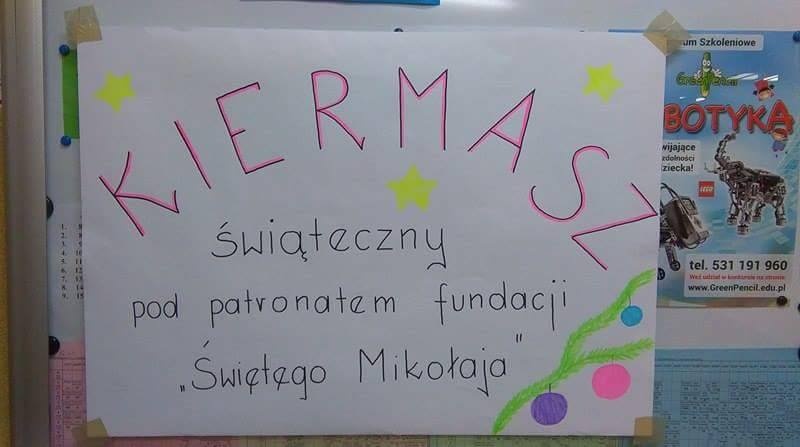 KIERMASZ
świąteczny
pod patronatem fundacji
„Świętęgo Mikołaja”
um Szkoleniowe
GreenPencil
BOTYKA
wijające
zdolności
ziecka!
LEGO
tel. 531 191 960
Weź udział w konkursie na stronie:
www.GreenPencil.edu.pl